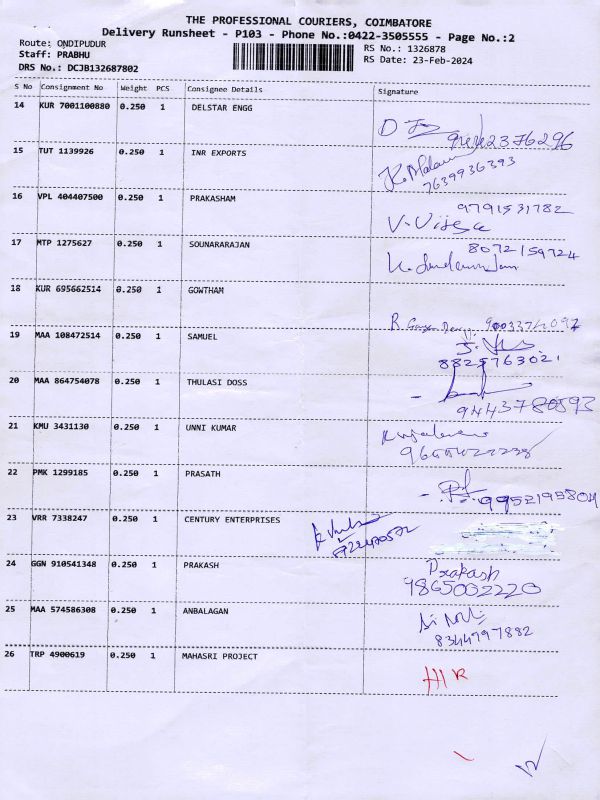 THE PROFESSIONAL COURIERS, COIMBATORE
Delivery Runsheet - P103 - Phone No.:0422-3505555 - Page No.:2
Route: ONDIPUDUR
RS No.: 1326878
Staff: PRABHU
RS Date: 23-Feb-2024
DRS No.: DCJB132687802
S No Consignment No Weight PCS Consignee Details Signature
14 KUR 7001100880 0.250 1 DELSTAR ENGG
15 TUT 1139926 0.250 1 INR EXPORTS
7639936393
16 VPL 404407500 0.250 1 PRAKASHAM
9791531782
17 MTP 1275627 0.250 1 SOUNARARAJAN
8072159724
18 KUR 695662514 0.250 1 GOWTHAM
19 MAA 108472514 1 SAMUEL
0.250
8825763021
20 MAA 864754078 0.250 1 THULASI DOSS
9443780593
21 KMU 3431130 0.250 1 UNNI KUMAR
22 PMK 1299185 0.250 1 PRASATH
9952195804
23 VRR 7338247 0.250 1 CENTURY ENTERPRISES
24 GGN 910541348 0.250 1 PRAKASH
Prakash
9865002220
25 MAA 574586308 0.250 1 ANBALAGAN
8344797882
26 TRP 4900619 0.250 1 MAHASRI PROJECT